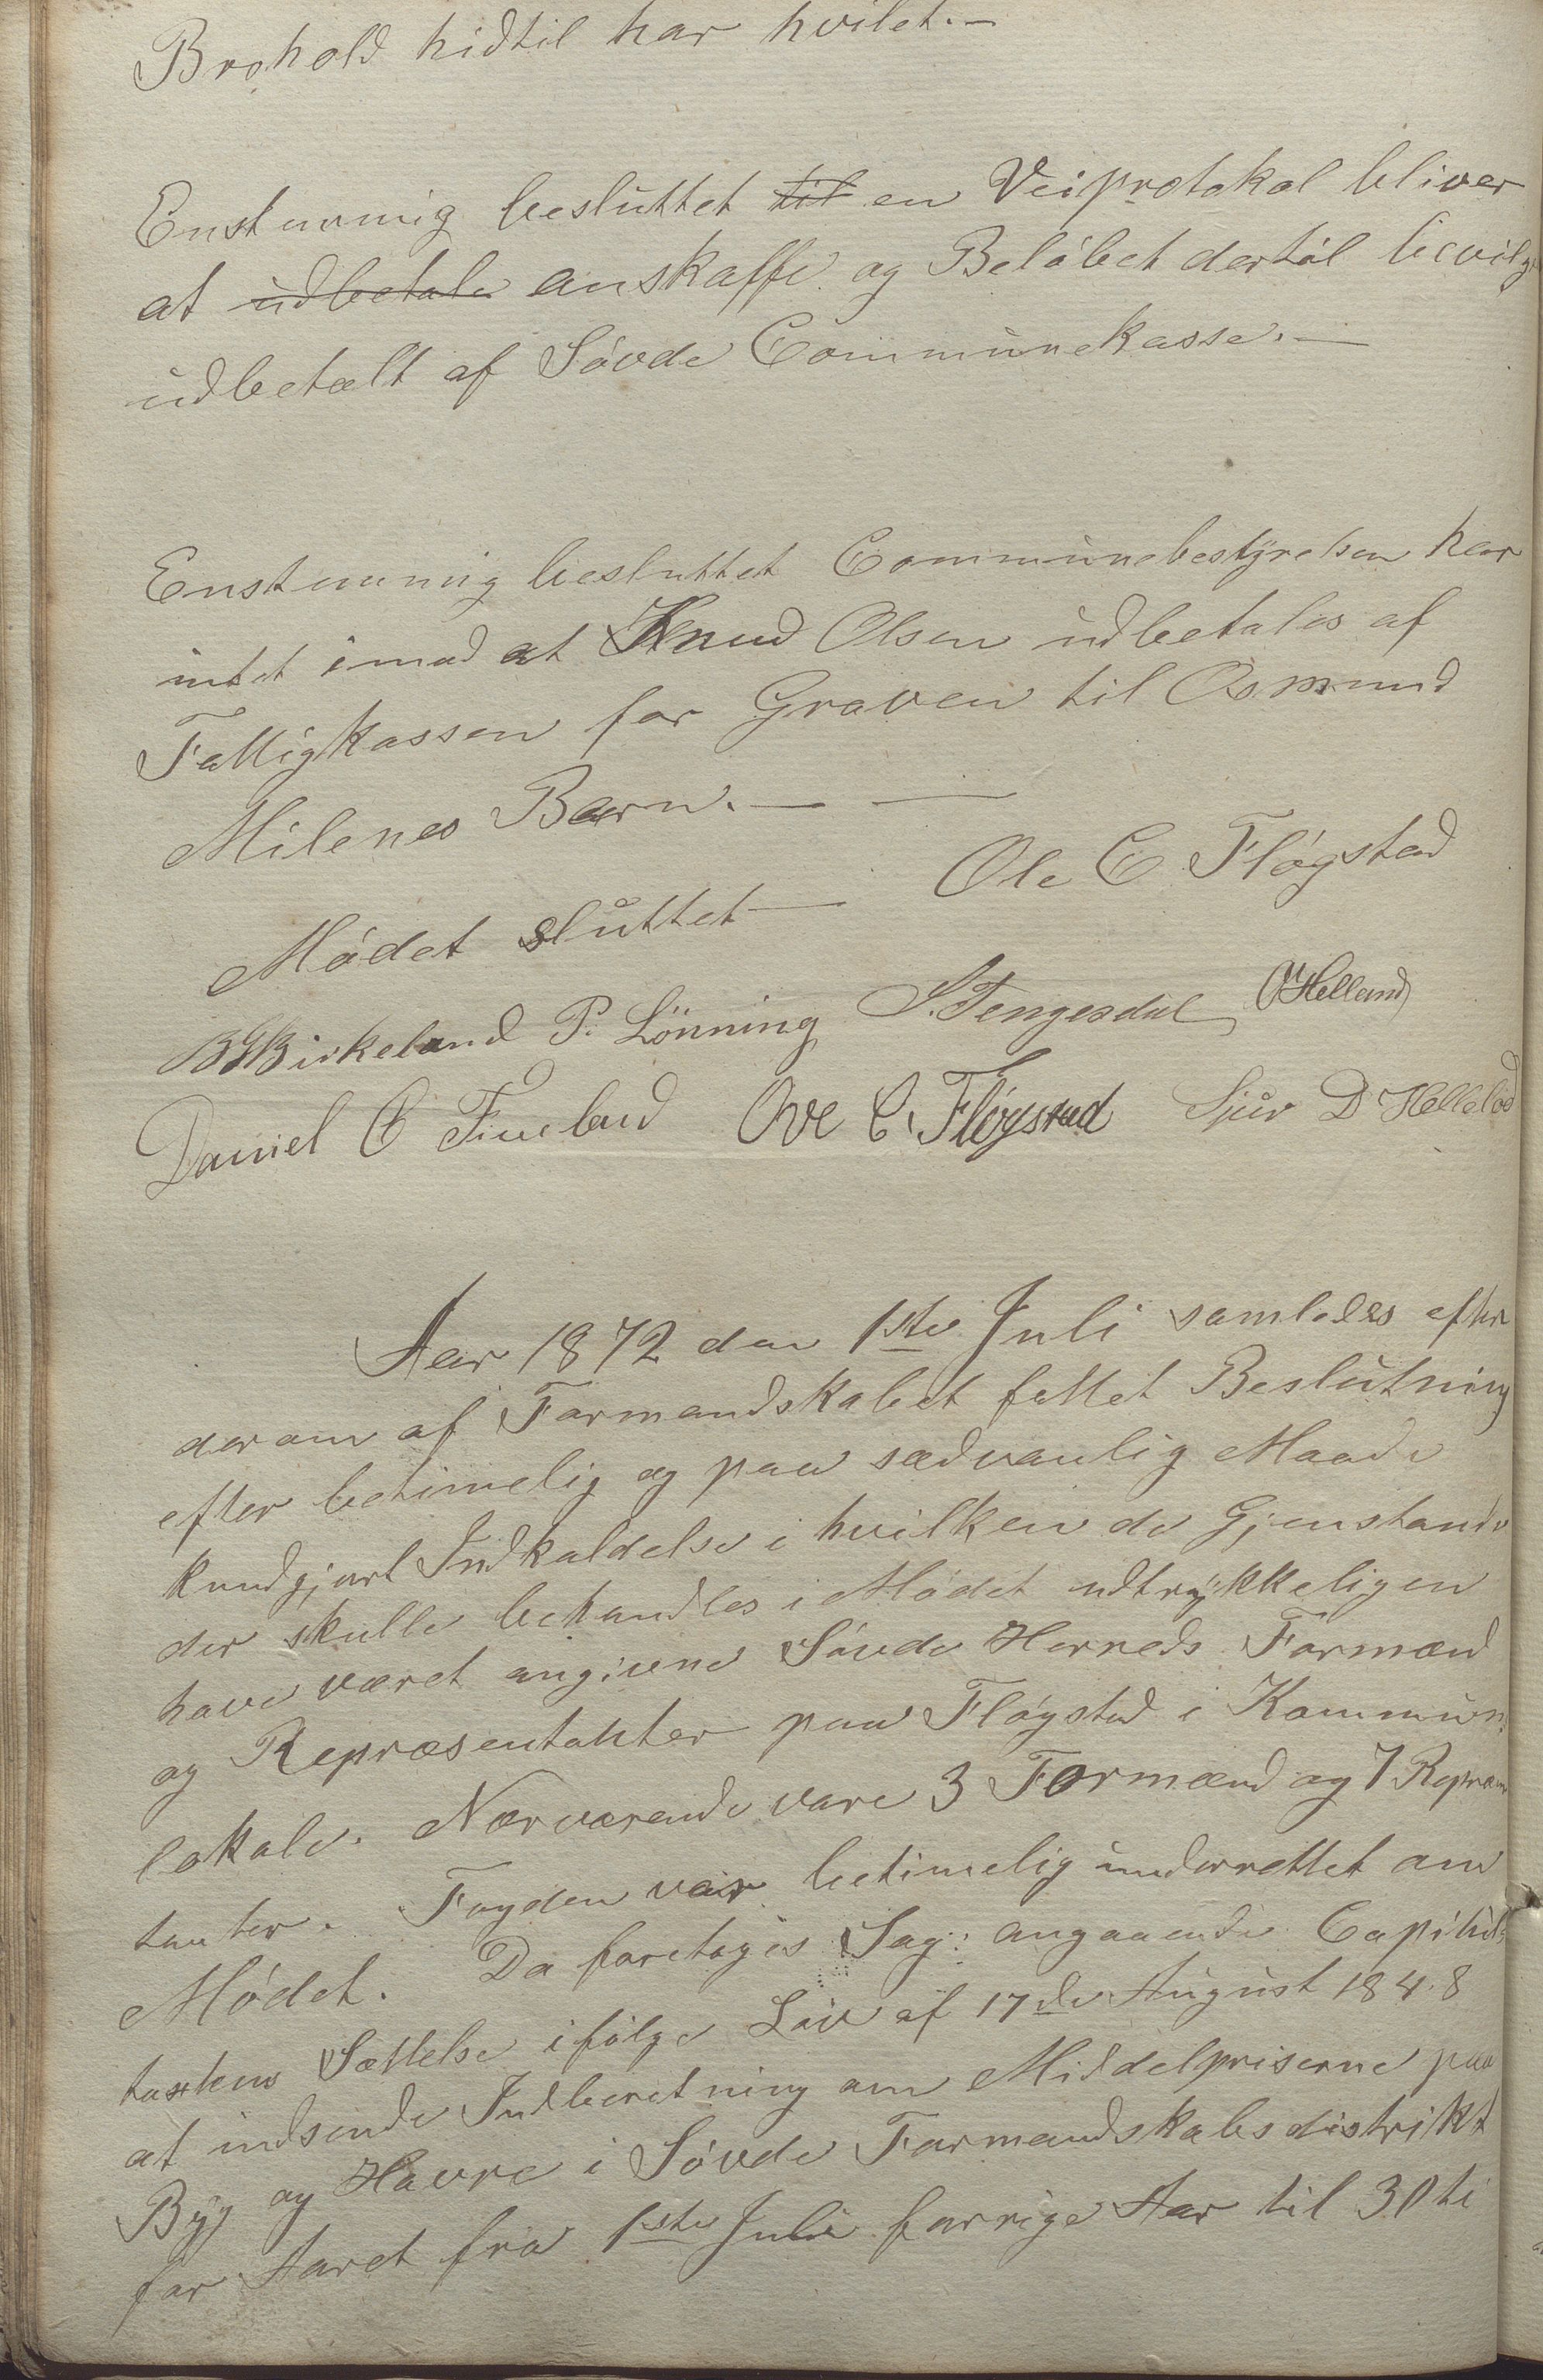 Brohold hidtil har hvilet.—
Enstemmig besluttet til en Veiprotokol bliver
at udbetale anskaffe og Beløbet dertil bevilg
udbetalt af Søvde Communekasse.—
Enstemmig besluttet Communebestyrelsen har
intet imod at Knud Olsen udbetales af
Fattigkassen for Graven til Osmund
Milenes Barn.— —
Mødet sluttet— Ole C Fløgstad
BGBirkeland P. Lönning S. Tengesdal OHelland
Daniel C Fineland Ove C. Fløgstad Sjur D Helleland
Aar 1872 den 1ste Juli samledes efter
derom af Formandskabet fattet Beslutning
efter betimelig og paa sædvanlig Maade
kundgjort Indkaldelse i hvilken de Gjenstande
der skulle behandles i Mødet udtrykkeligen
have været angivne Søvde Herreds Formænd
og Repræsentanter paa Fløgstad i Kommune
lokale. Nærværende vare 3 Formænd og 7 Repræsen
tanter. Fogden var betimelig underrettet om
Mødet. Da foretoges Sag: angaaende Capitels
taxtens Sættelse ifølge Lov af 17de August 1848
at indsende Indberetning om Middelpriserne paa
Byg og Havre i Søvde Formandskabsdistrikt
for Aaret fra 1ste Juli forrige Aar til 30te